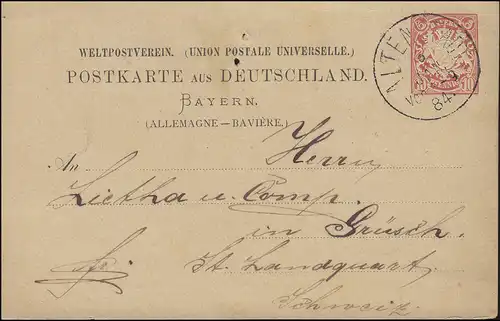 WELTPOSTVEREIN. (UNION POSTALE UNIVERSELLE.)
POSTKARTE AUS DEUTSCHLAND.
BAYERN.
(ALLEMAGNE—BAVIÈRE.)
10 10
84.
Herrn
An
Lietha u. Comp.
in Grüsch.
St. Landquart.
Schweiz.